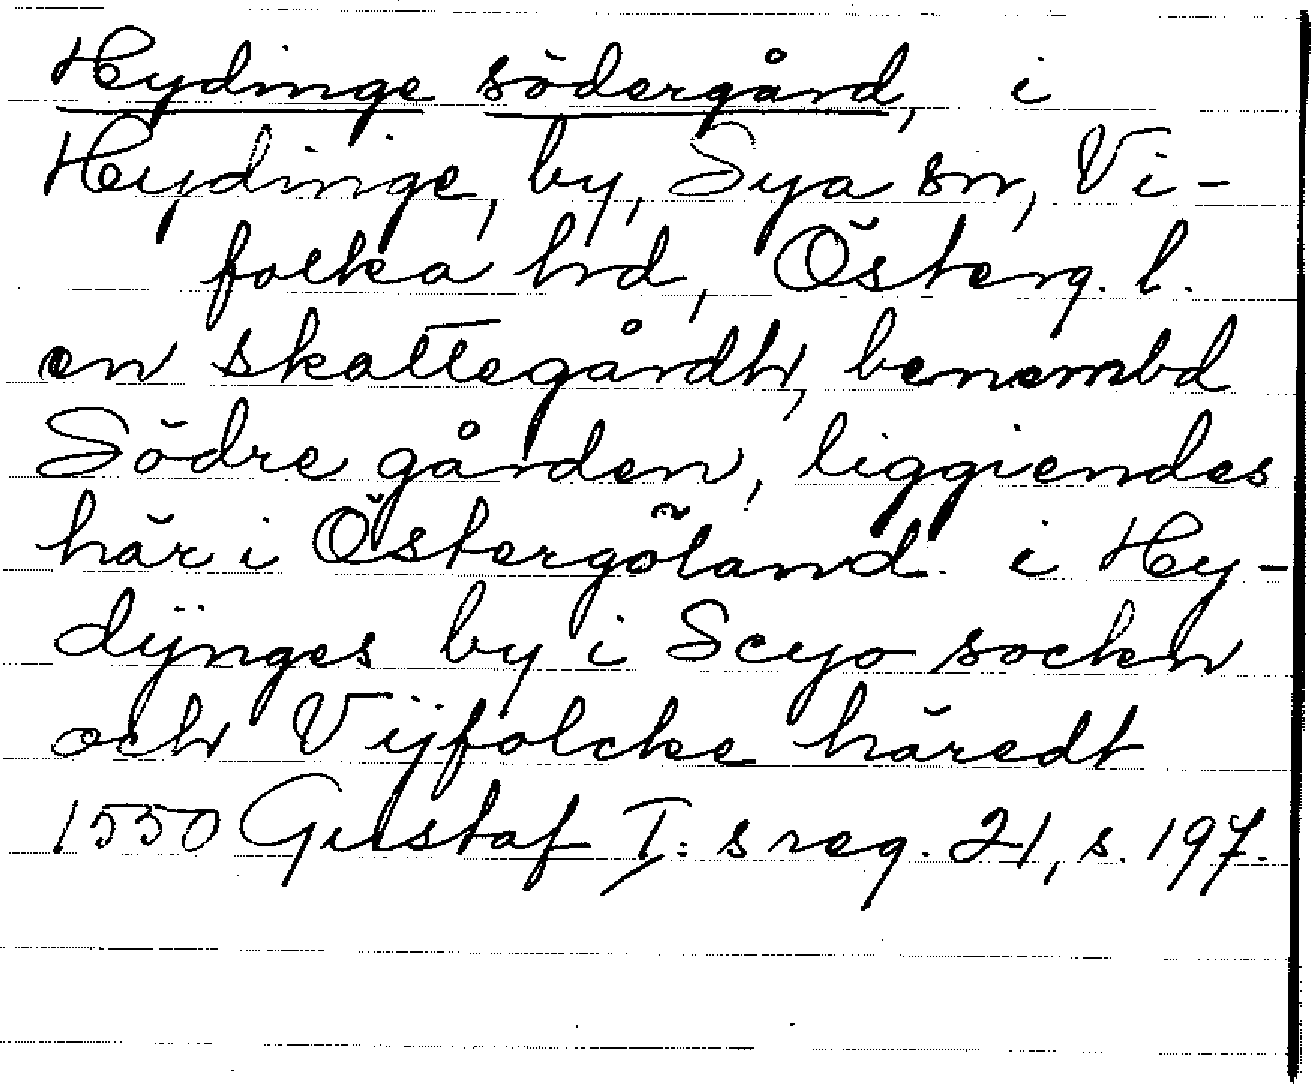 Hydinge södergård, i
Hydinge, by, Sya sn, Vi-
folka hd, Österg. l.
en skattegårdh, benembd
Södre gården, liggiendes
här i Östergöland i Hy-
dÿnges by i Scyo sockn
och Vÿfolcke häredt
1550 Gustaf I: s reg. 21, s. 197.